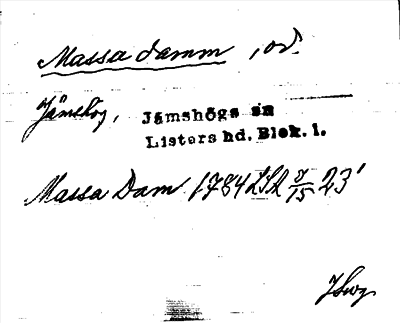 Massadamm, od.
Jämshög, Jämshögs sn
Listers hd. Blek. l.
Massa Dam 1784 LSA 15 23'